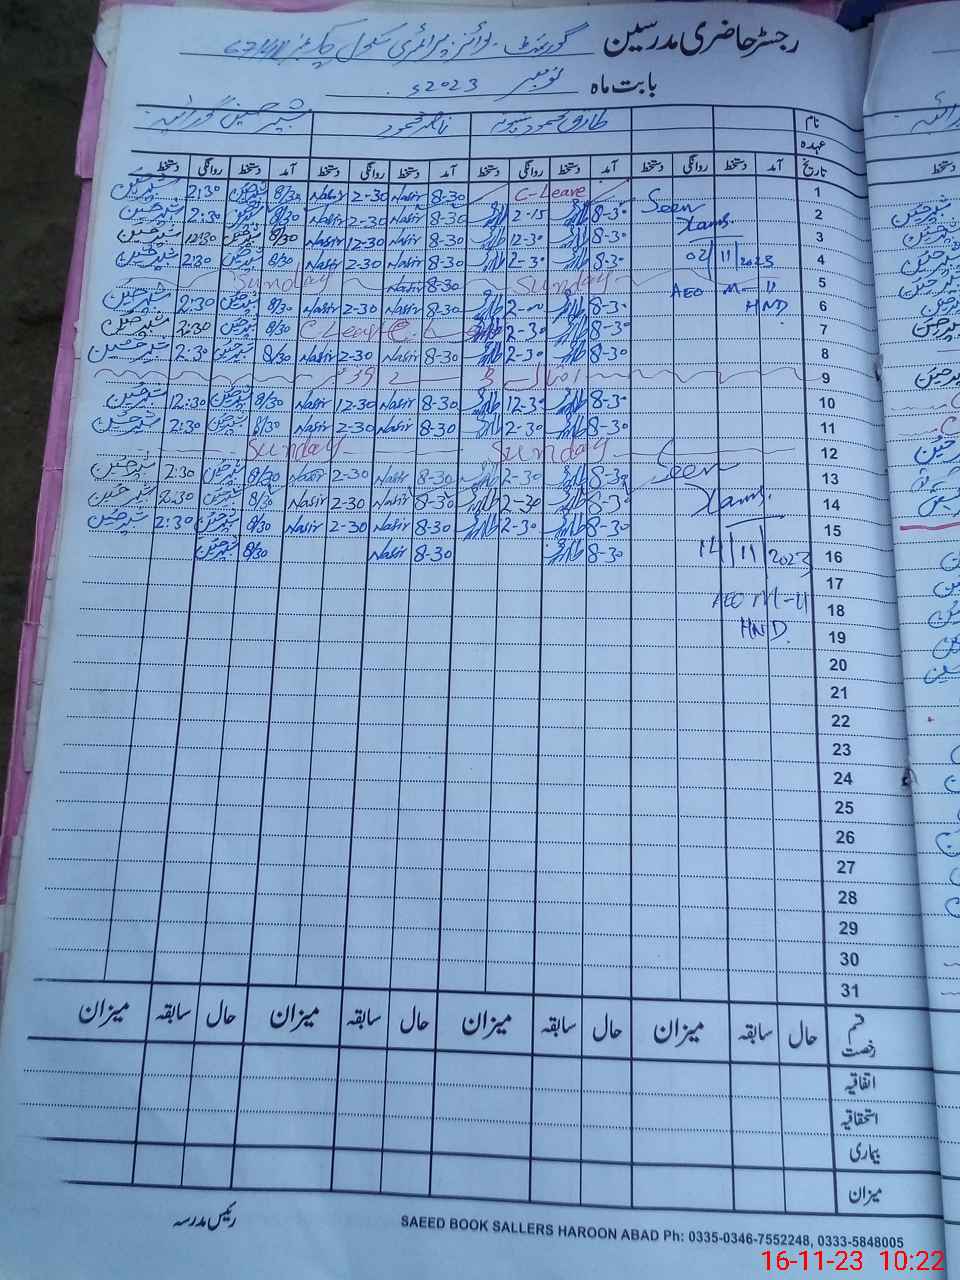 رجسٹر حاضری مدرسین گورنمنٹ بوائز پرائمری سکول
بابت ماہ نومبر 2023ء
نام طارق محمود ناصر محمود شبیر حسین
عہدہ
تاریخ آمد دستخط روانگی دستخط آمد دستخط روانگی دستخط آمد دستخط روانگی دستخط آمد دستخط روانگی دستخط
1 Seen C-Leave 8-30 Nasir 2-30 Nasir 8/30 شبیر حسین 2:30 شبیر حسین
2 8-30 طارق 2-15 طارق 8-30 Nasir 2-30 Nasir 8/30 شبیر حسین 2:30 شبیر حسین
3 8-30 طارق 12-30 طارق 8-30 Nasir 12-30 Nasir 8/30 شبیر حسین 12:30 شبیر حسین
4 02/11/2023 8-30 طارق 2-30 طارق 8-30 Nasir 2-30 Nasir 8/30 شبیر حسین 2:30 شبیر حسین
5 Sunday 8-30 Nasir Sunday
AEO M-II
6 HND 8-30 طارق 2-00 طارق 8-30 Nasir 2-30 Nasir 8/30 شبیر حسین 2:30 شبیر حسین
7 8-30 طارق 2-30 طارق C-Leave 8/30 شبیر حسین 2:30 شبیر حسین
8 8-30 طارق 2-30 طارق 8-30 Nasir 2-30 Nasir 8/30 شبیر حسین 2:30 شبیر حسین
9 اقبال ڈے
10 8-30 طارق 12-30 طارق 8-30 Nasir 12-30 Nasir 8/30 شبیر حسین 12:30 شبیر حسین
11 8-30 طارق 2-30 طارق 8-30 Nasir 2-30 Nasir 8/30 شبیر حسین 2:30 شبیر حسین
12 Sunday Sunday
13 Seen 8-30 طارق 2-30 طارق 8-30 Nasir 2-30 Nasir 8/30 شبیر حسین 2:30 شبیر حسین
14 8-30 طارق 2-30 طارق 8-30 Nasir 2-30 Nasir 8/30 شبیر حسین 2:30 شبیر حسین
15 8-30 طارق 2-30 طارق 8-30 Nasir 2-30 Nasir 8/30 شبیر حسین 2:30 شبیر حسین
16 14/11/2023 8-30 طارق 8-30 Nasir 8/30 شبیر حسین
17
18 AEO M-II
19 HND
20
21
22
23
24
25
26
27
28
29
30
31
قسم رخصت حال سابقہ میزان حال سابقہ میزان حال سابقہ میزان حال سابقہ میزان
اتفاقیہ
استحقاقیہ
بیماری
میزان
رئیس مدرسہ
SAEED BOOK SALLERS HAROON ABAD Ph: 0335-0346-7552248, 0333-5848005
16-11-23 10:22